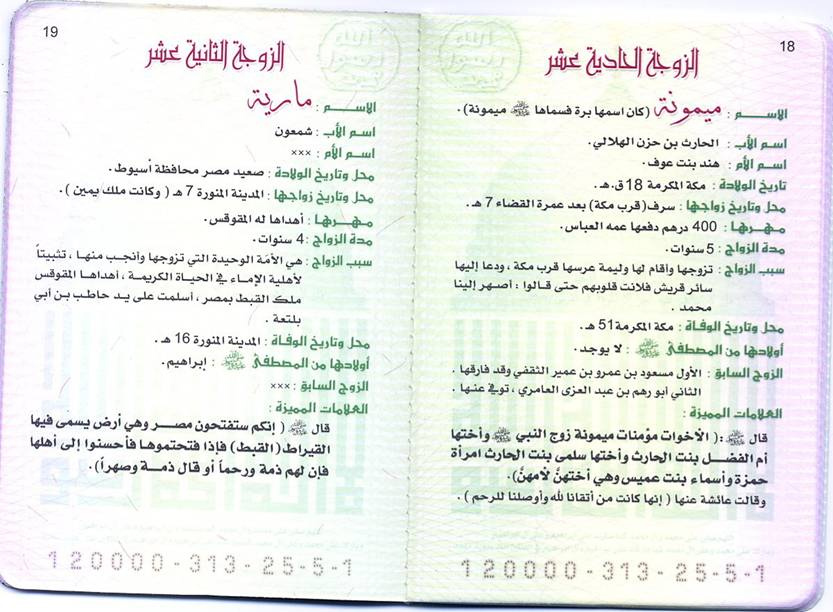 18
الزوجة الحادية عشر
الاســـم : ميمونة (كان اسمها برة فسماها ﷺ ميمونة).
اسم الأب : الحارث بن حزن الهلالي.
اسم الأم : هند بنت عوف.
تاريخ الولادة : مكة المكرمة 18ق.هـ.
محل وتاريخ زواجها : سرف(قرب مكة) بعد عمرة القضاء 7 هـ.
مـهـرهـا : 400 درهم دفعها عمه العباس.
مدة الزواج : 5 سنوات.
سبب الزواج : تزوجها وأقام لها وليمة عرسها قرب مكة ، ودعا إليها
سائر قريش فلانت قلوبهم حتى قالوا : أصهر إلينا
محمد .
محل وتاريخ الوفاة : مكة المكرمة 51 هـ.
أولادها من المصطفى ﷺ : لا يوجد.
الزوج السابق : الأول مسعود بن عمرو بن عمير الثقفي وقد فارقها .
الثاني أبو رهم بن عبد العزى العامري ، توفي عنها .
العلامات المميزة :
قال ﷺ :( الأخوات مؤمنات ميمونة زوج النبي ﷺ وأختها
أم الفضل بنت الحارث وأختها سلمى بنت الحارث امرأة
حمزة وأسماء بنت عميس وهي أختهنَّ لأمهنَّ).
وقالت عائشة عنها ( إنها كانت من أتقانا لله وأوصلنا للرحم ) .
120000-313-25-5-1
19
الزوجة الثانية عشر
الاســـم : مارية
اسم الأب : شمعون
اسم الأم : ×××
محل وتاريخ الولادة : صعيد مصر محافظة أسيوط .
محل وتاريخ زواجها : المدينة المنورة 7 هـ ( وكانت ملك يمين ).
مـهـرهـا : أهداها له المقوقس.
مدة الزواج : 4 سنوات.
سبب الزواج : هي الأمَة الوحيدة التي تزوجها وأنجب منها ، تثبيتاً
لأهلية الإماء في الحياة الكريمة ، أهداها المقوقس
ملك القبط بمصر ، أسلمت على يد حاطب بن أبي
بلتعة .
محل وتاريخ الوفاة : المدينة المنورة 16 هـ .
أولادها من المصطفى ﷺ : إبراهيم.
الزوج السابق : ×××
العلامات المميزة :
قال ﷺ ( إنكم ستفتحون مصر وهي أرض يسمى فيها
القيراط (القبط) فإذا فتحتموها فأحسنوا إلى أهلها
فإن لهم ذمة ورحماً أو قال ذمة وصهراً).
120000-313-25-5-1